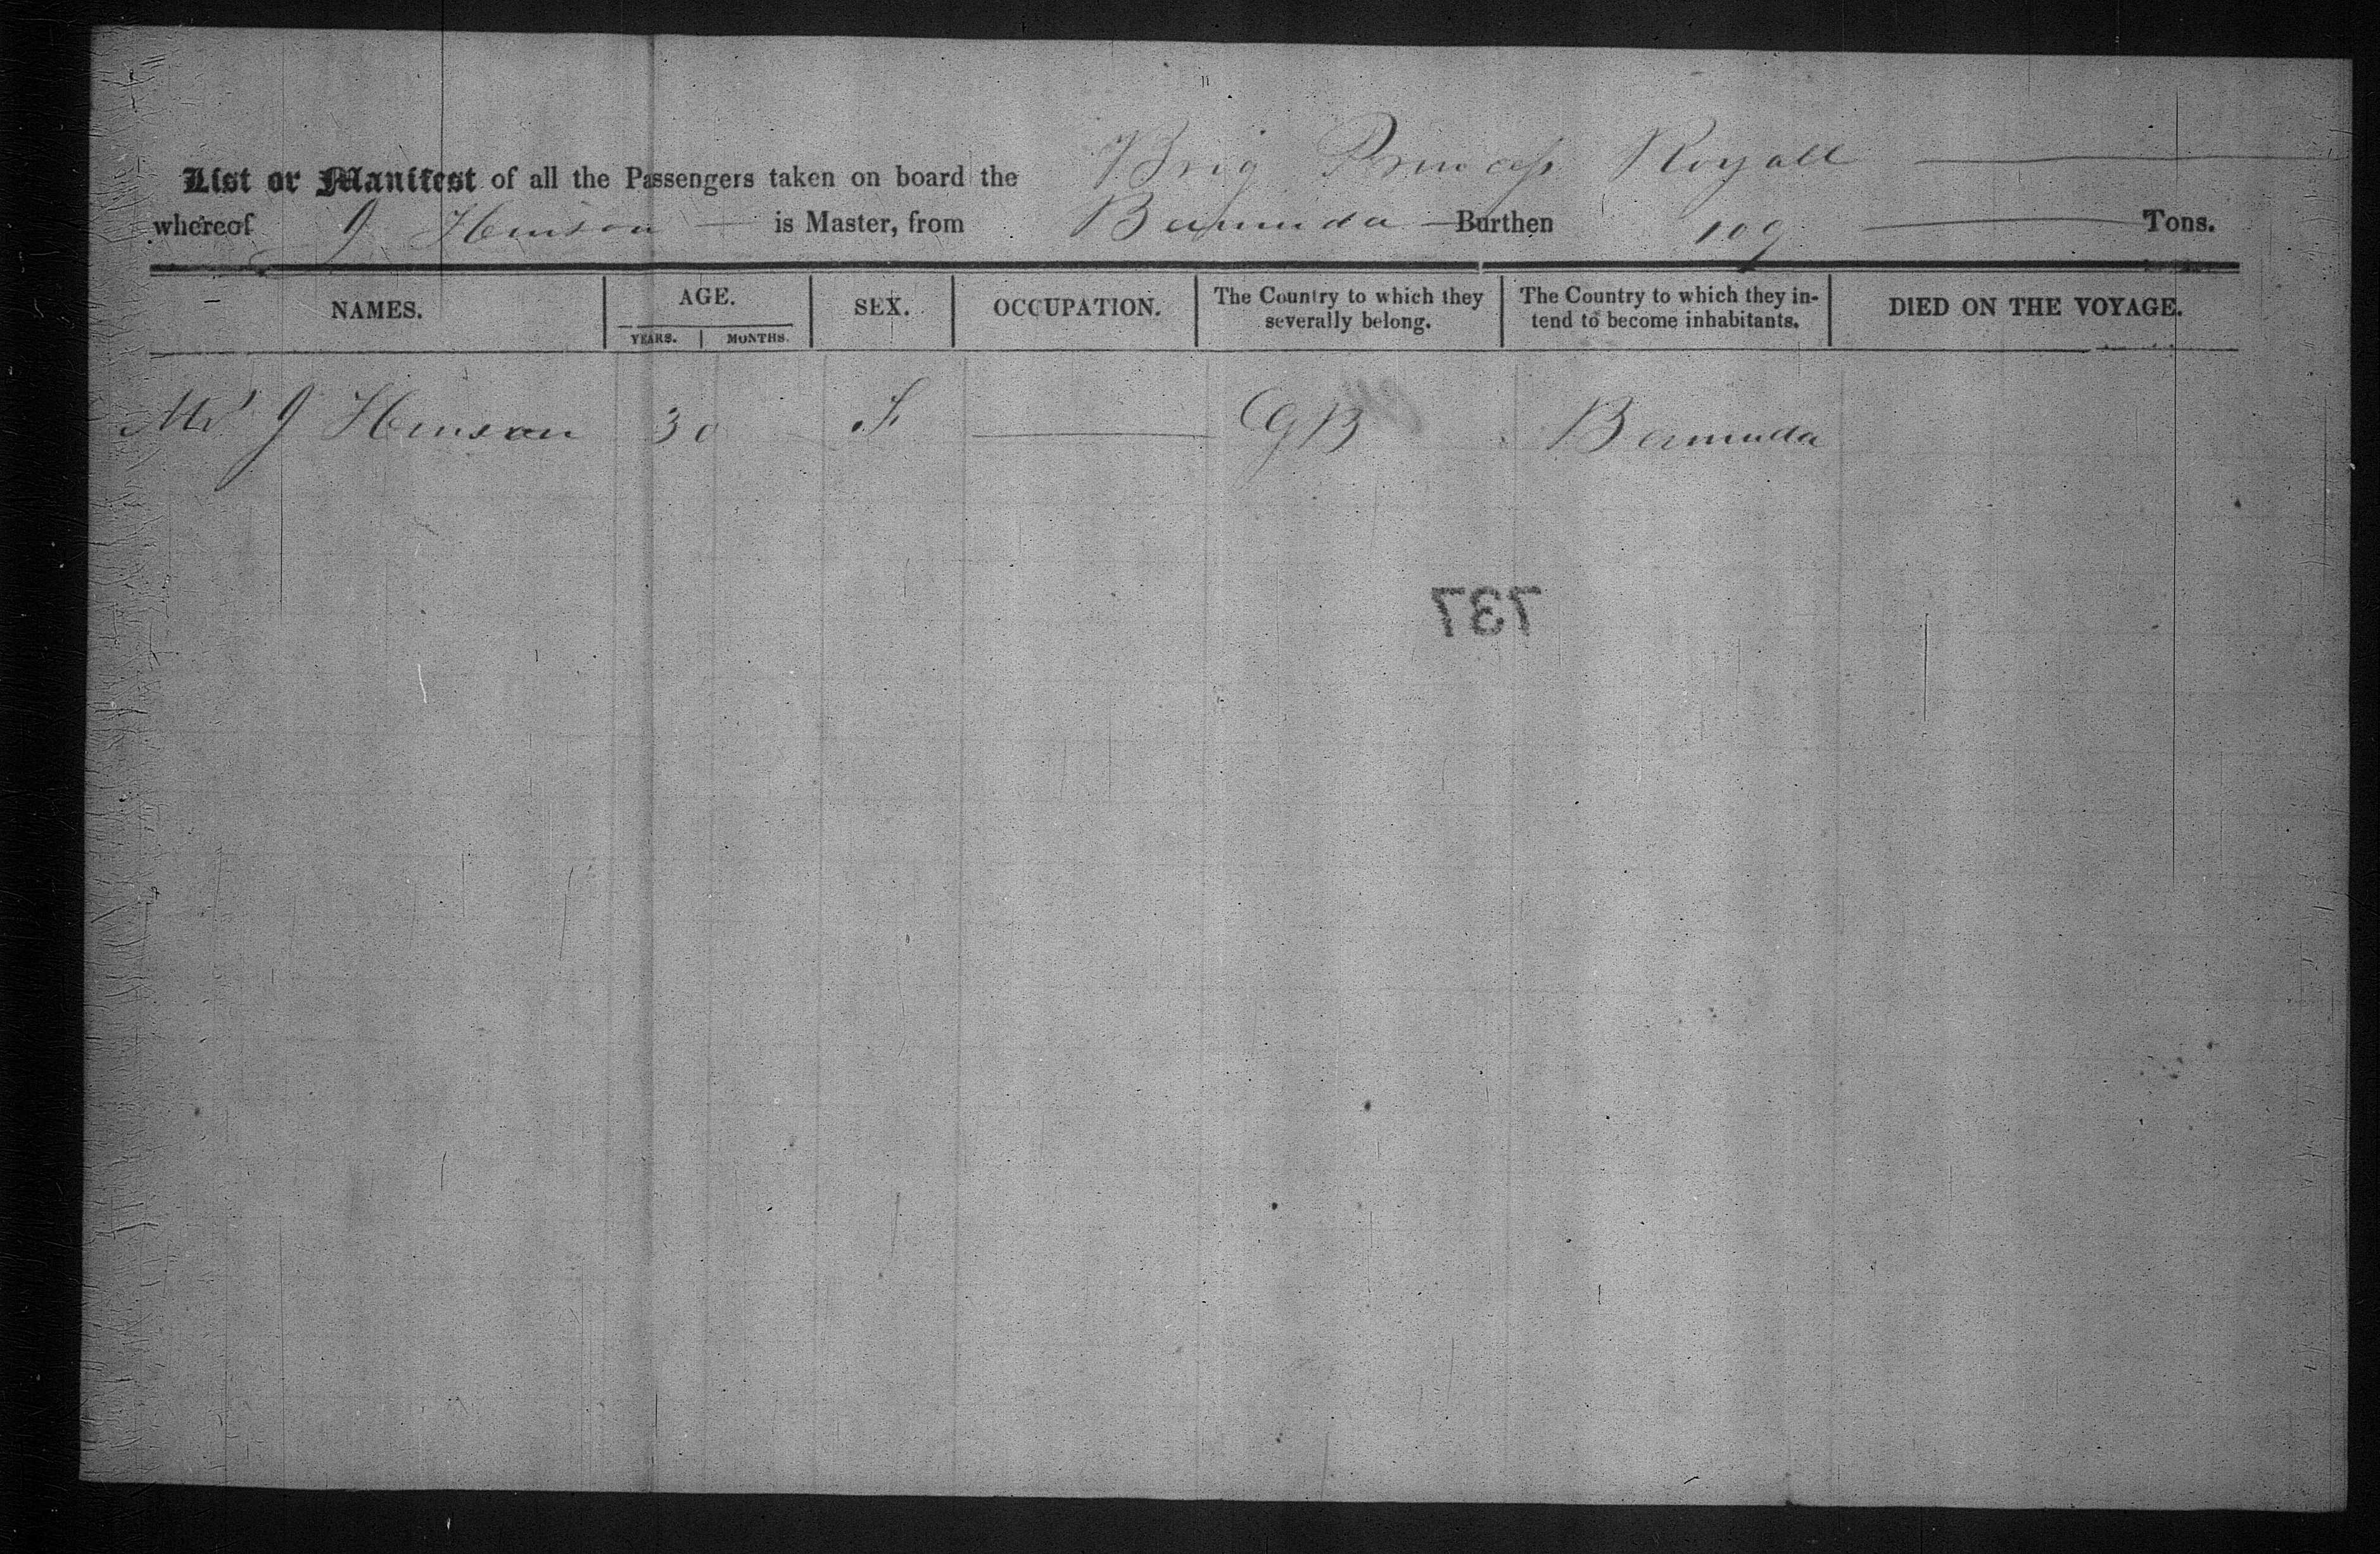 List or Manifest of all the Passengers taken on board the Brig Princess Royall
whereof J Hinson is Master, from Bermuda Burthen 109 Tons.
NAMES. AGE. SEX. OCCUPATION. The Country to which they severally belong. The Country to which they in-tend to become inhabitants. DIED ON THE VOYAGE.
YEARS. MONTHS.
Mrs J Hinson 30 F GB Bermuda
737